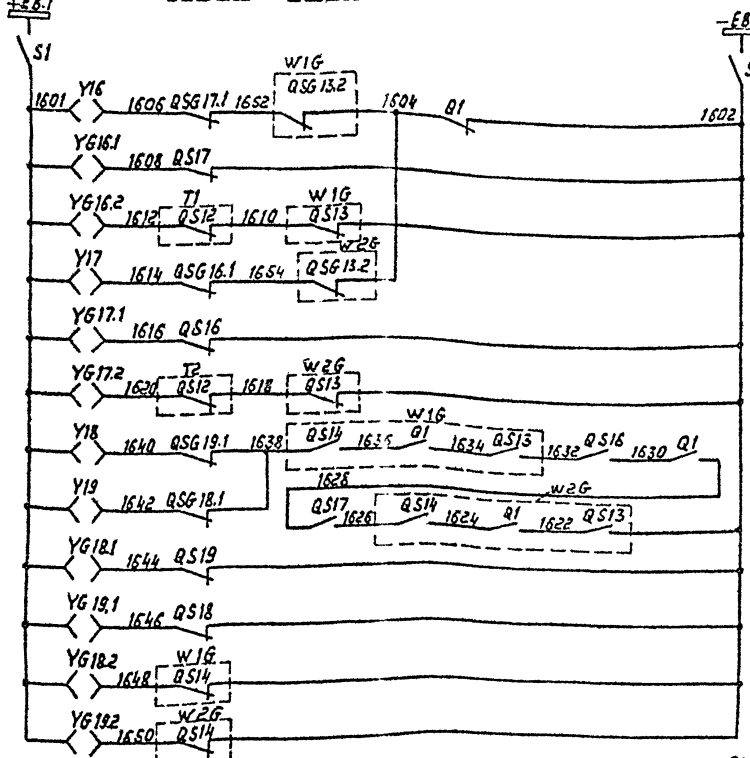 +EB.1
-EB
S1
S
W1G
1601 Y16 1606 QSG17.1 1652 QSG13.2 1604 Q1 1602
YG16.1 1608 QS17
T1 W1G
YG16.2 1612 QS12 1610 QS13
W2G
Y17 1614 QSG16.1 1654 QSG13.2
YG17.1 1616 QS16
T2 W2G
YG17.2 1620 QS12 1618 QS13
W1G
Y18 1640 QSG19.1 1638 QS14 1636 Q1 1634 QS13 1632 QS16 1630 Q1
1628 W2G
Y19 1642 QSG18.1 QS17 1626 QS14 1624 Q1 1622 QS13
YG18.1 1644 QS19
YG19.1 1646 QS18
W1G
YG18.2 1648 QS14
W2G
YG19.2 1650 QS14